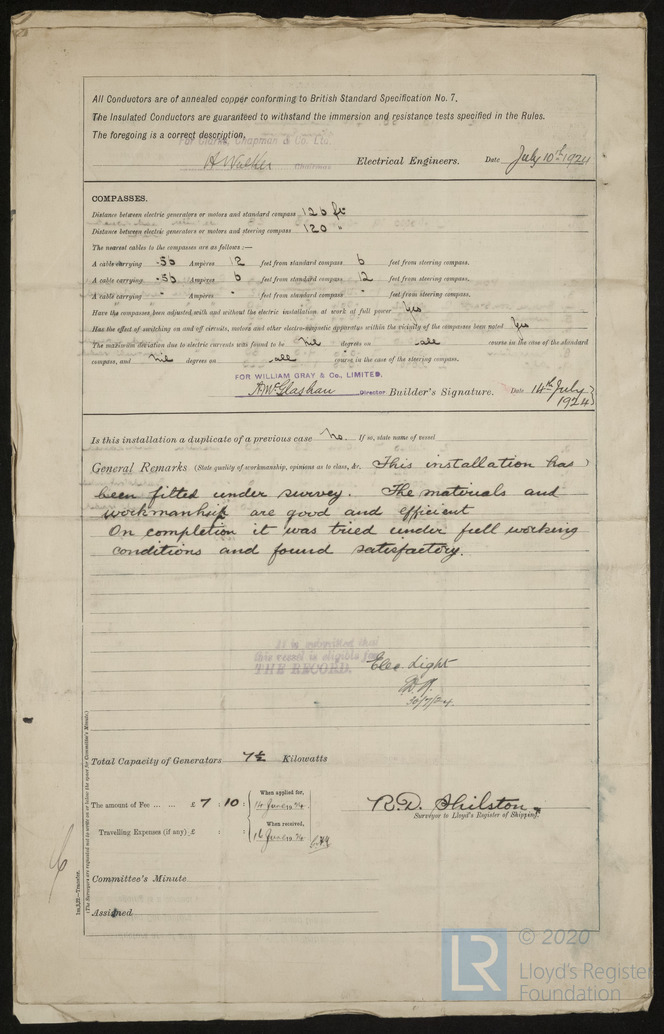 All Conductors are of annealed copper conforming to British Standard Specification No. 7.
The Insulated Conductors are guaranteed to withstand the immersion and resistance tests specified in the Rules.
The foregoing is a correct description,
For Clarke, Chapman & Co. Ltd.
A Walker Chairman Electrical Engineers. Date July 10th 1924
COMPASSES.
Distance between electric generators or motors and standard compass 126 ft
Distance between electric generators or motors and steering compass 120 "
The nearest cables to the compasses are as follows:—
A cable carrying .56 Ampères 12 feet from standard compass 6 feet from steering compass.
A cable carrying .56 Ampères 6 feet from standard compass 12 feet from steering compass.
A cable carrying - Ampères - feet from standard compass - feet from steering compass.
Have the compasses been adjusted with and without the electric installation at work at full power Yes
Has the effect of switching on and off circuits, motors and other electro-magnetic apparatus within the vicinity of the compasses been noted Yes
The maximum deviation due to electric currents was found to be Nil degrees on all course in the case of the standard
compass, and Nil degrees on all course in the case of the steering compass.
FOR WILLIAM GRAY & Co., LIMITED.
A McGlashan Director Builder's Signature. Date 14th July 1924
Is this installation a duplicate of a previous case No. If so, state name of vessel
General Remarks (State quality of workmanship, opinions as to class, &c. This installation has
been fitted under survey. The materials and
workmanship are good and efficient
On completion it was tried under full working
conditions and found satisfactory.
It is submitted that
this vessel is eligible for
THE RECORD. Elec. Light
30/7/24.
Total Capacity of Generators 7½ Kilowatts
The amount of Fee ... ... £ 7 : 10 : When applied for, 14 June 1924
Travelling Expenses (if any) £ : : When received, 16 June 1924
R.D. Shilston
Surveyor to Lloyd's Register of Shipping.
Committee's Minute
Assigned
(The Surveyors are requested not to write on or below the space for Committee's Minute.)
© 2020
LR
Lloyd's Register
Foundation